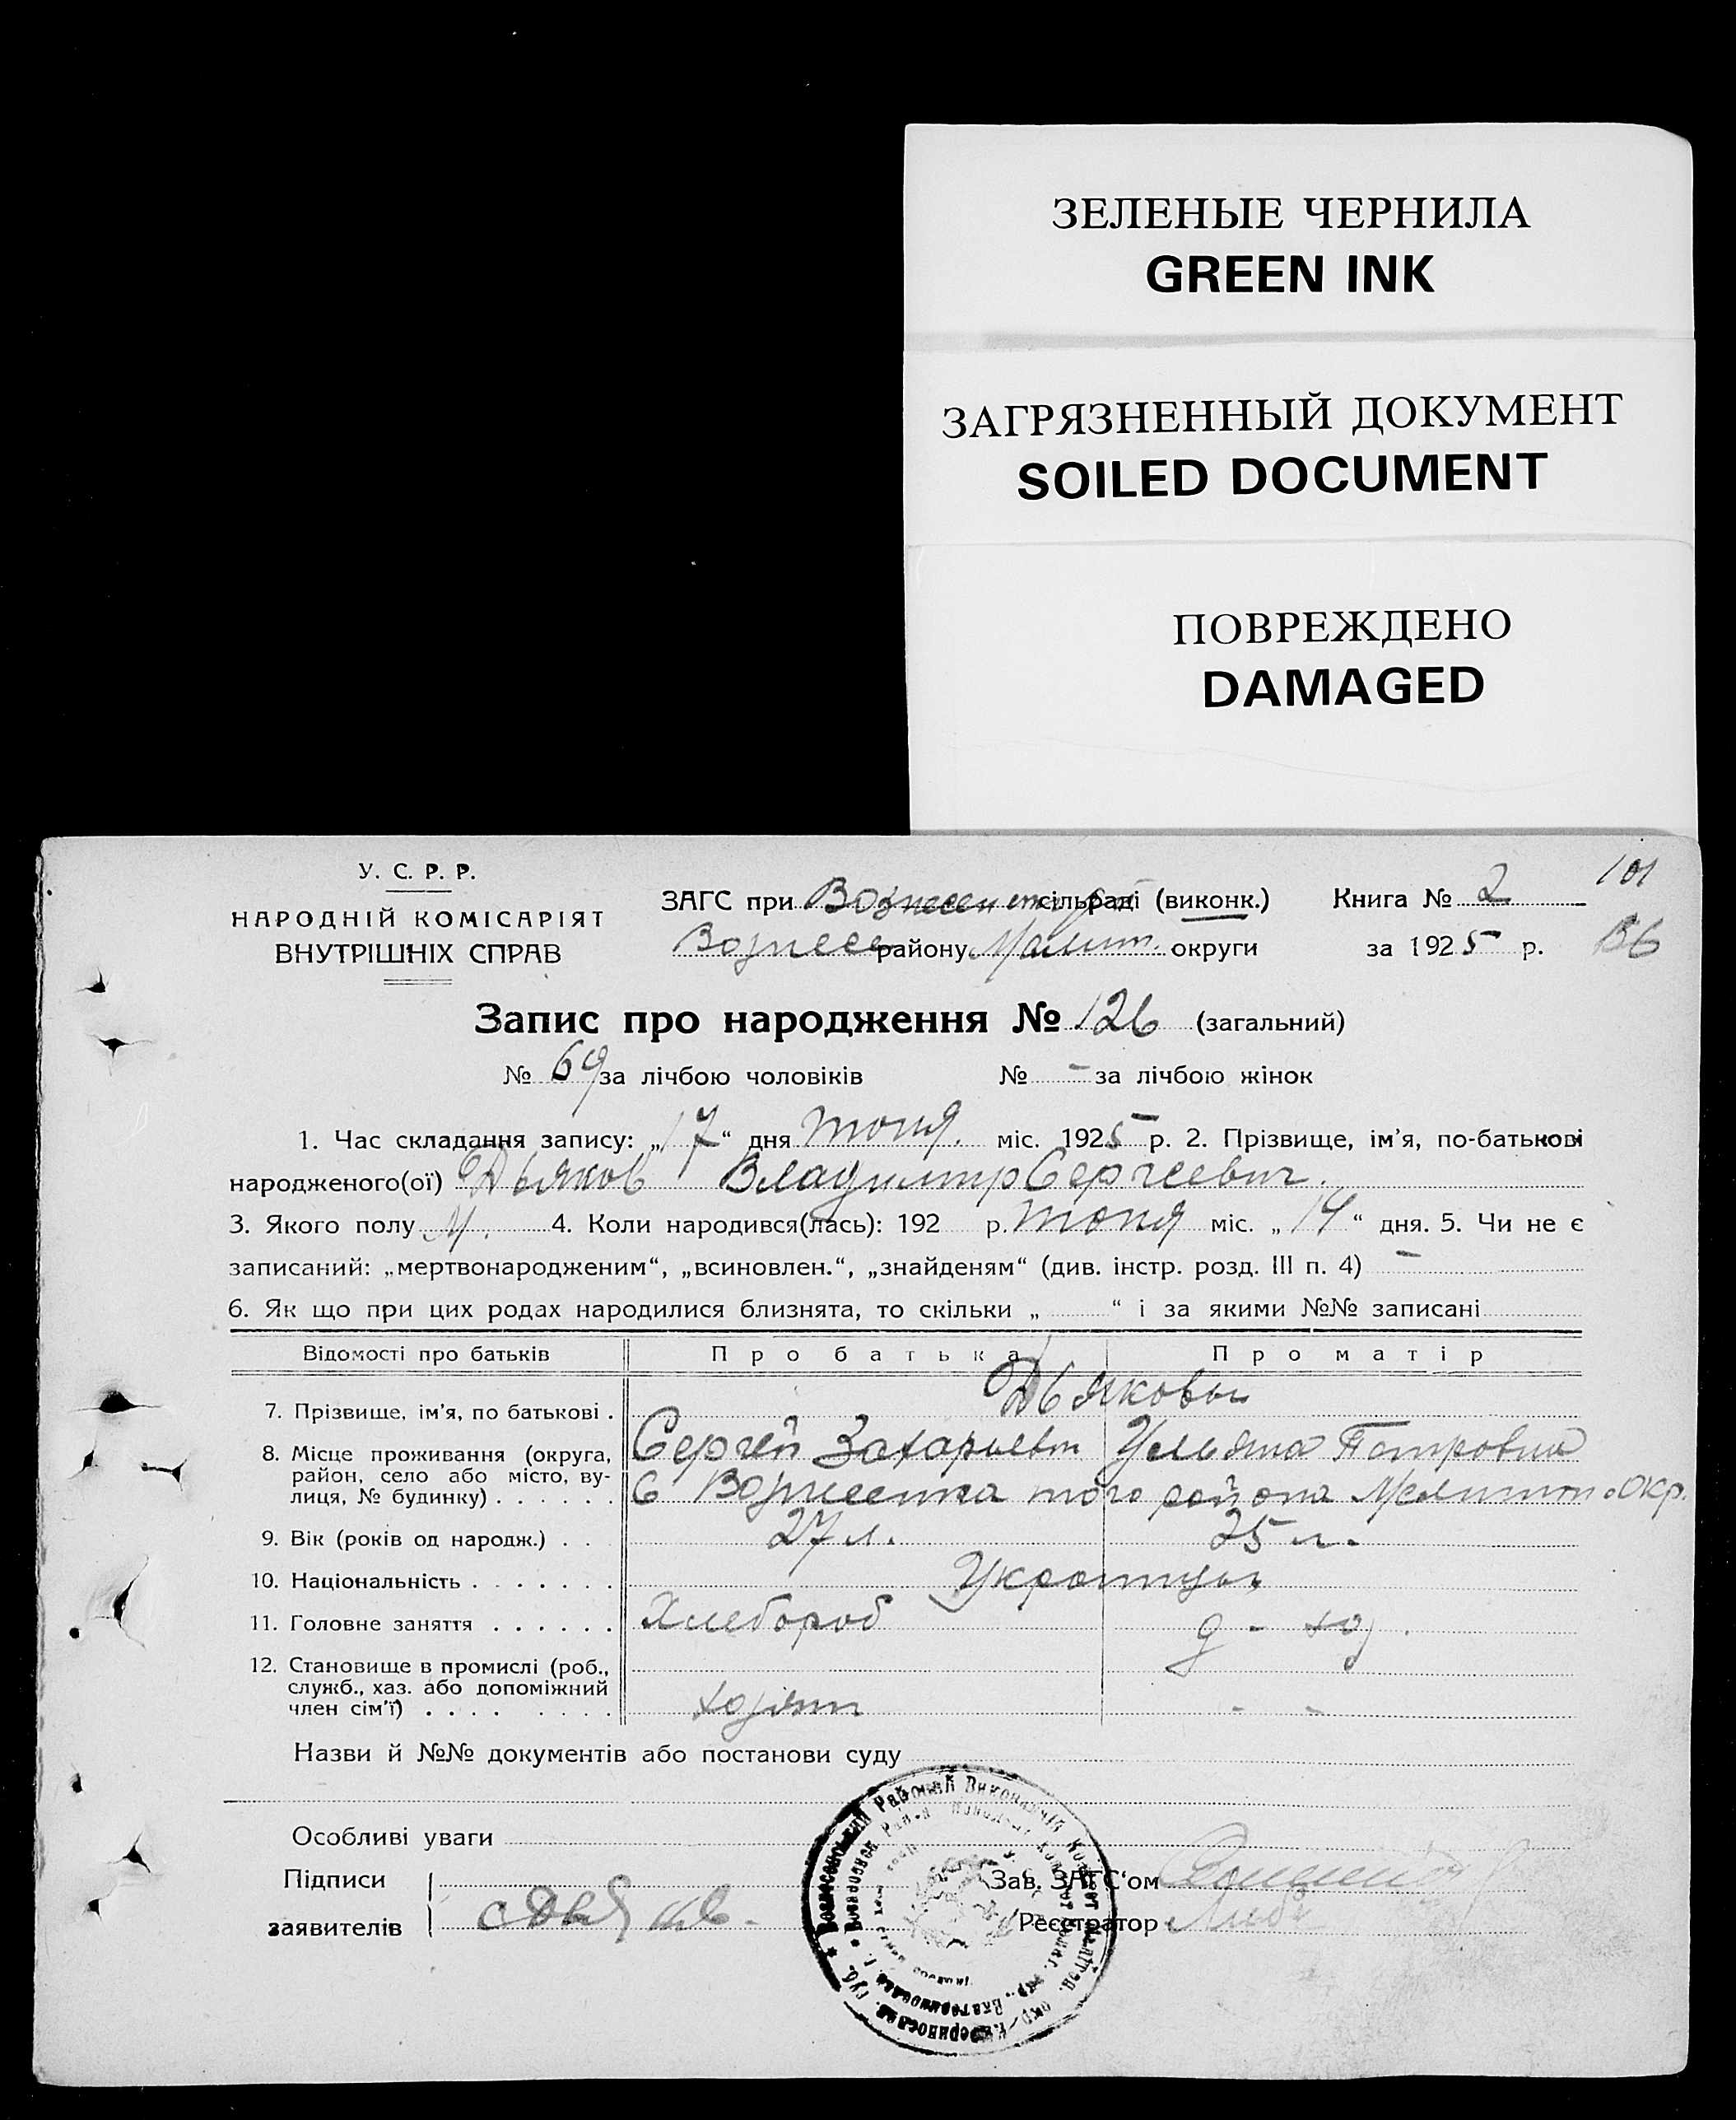 ЗЕЛЕНЫЕ ЧЕРНИЛА
GREEN INK
ЗАГРЯЗНЕННЫЙ ДОКУМЕНТ
SOILED DOCUMENT
ПОВРЕЖДЕНО
DAMAGED
У. С. Р. Р.
НАРОДНІЙ КОМІСАРІЯТ
ВНУТРІШНІХ СПРАВ
101
ЗАГС при Вознесенском сільраді (виконк.) Книга № 2
Вознесен району Мелит. округи за 1925 р.
Запис про народження № 126 (загальний)
№ 69 за лічбою чоловіків № - за лічбою жінок
1. Час складання запису: „17“ дня июня міс. 1925 р. 2. Прізвище, ім’я, по-батькові
народженого(ої) Дьяков Владимир Сергеевич.
3. Якого полу М. 4. Коли народився(лась): 192 р. июня міс. „14“ дня. 5. Чи не є
записаний: „мертвонародженим“, „всиновлен.“, „знайденям“ (див. інстр. розд. III п. 4) -
6. Як що при цих родах народилися близнята, то скільки „ “ і за якими №№ записані
Відомості про батьків Про батька Про матір
7. Прізвище, ім’я, по батькові . Дьяковы
Сергей Захарьевич Ульяна Петровна
8. Місце проживання (округа, район, село або місто, ву-
лиця, № будинку) . . . . . . С Вознесенка того района Мелитоп. Окр.
9. Вік (років од народж.) . . 27 л. 25 л.
10. Національність . . . . . . . Украинцы
11. Головне заняття . . . . . . Хлебороб д - хоз.
12. Становище в промислі (роб.,
служб., хаз. або допоміжний
член сім’ї) . . . . . . . . хозяин - -
Назви й №№ документів або постанови суду
Особливі уваги
Підписи
заявителів с Дьяков.
Зав. ЗАГС‘ом
Реєстратор